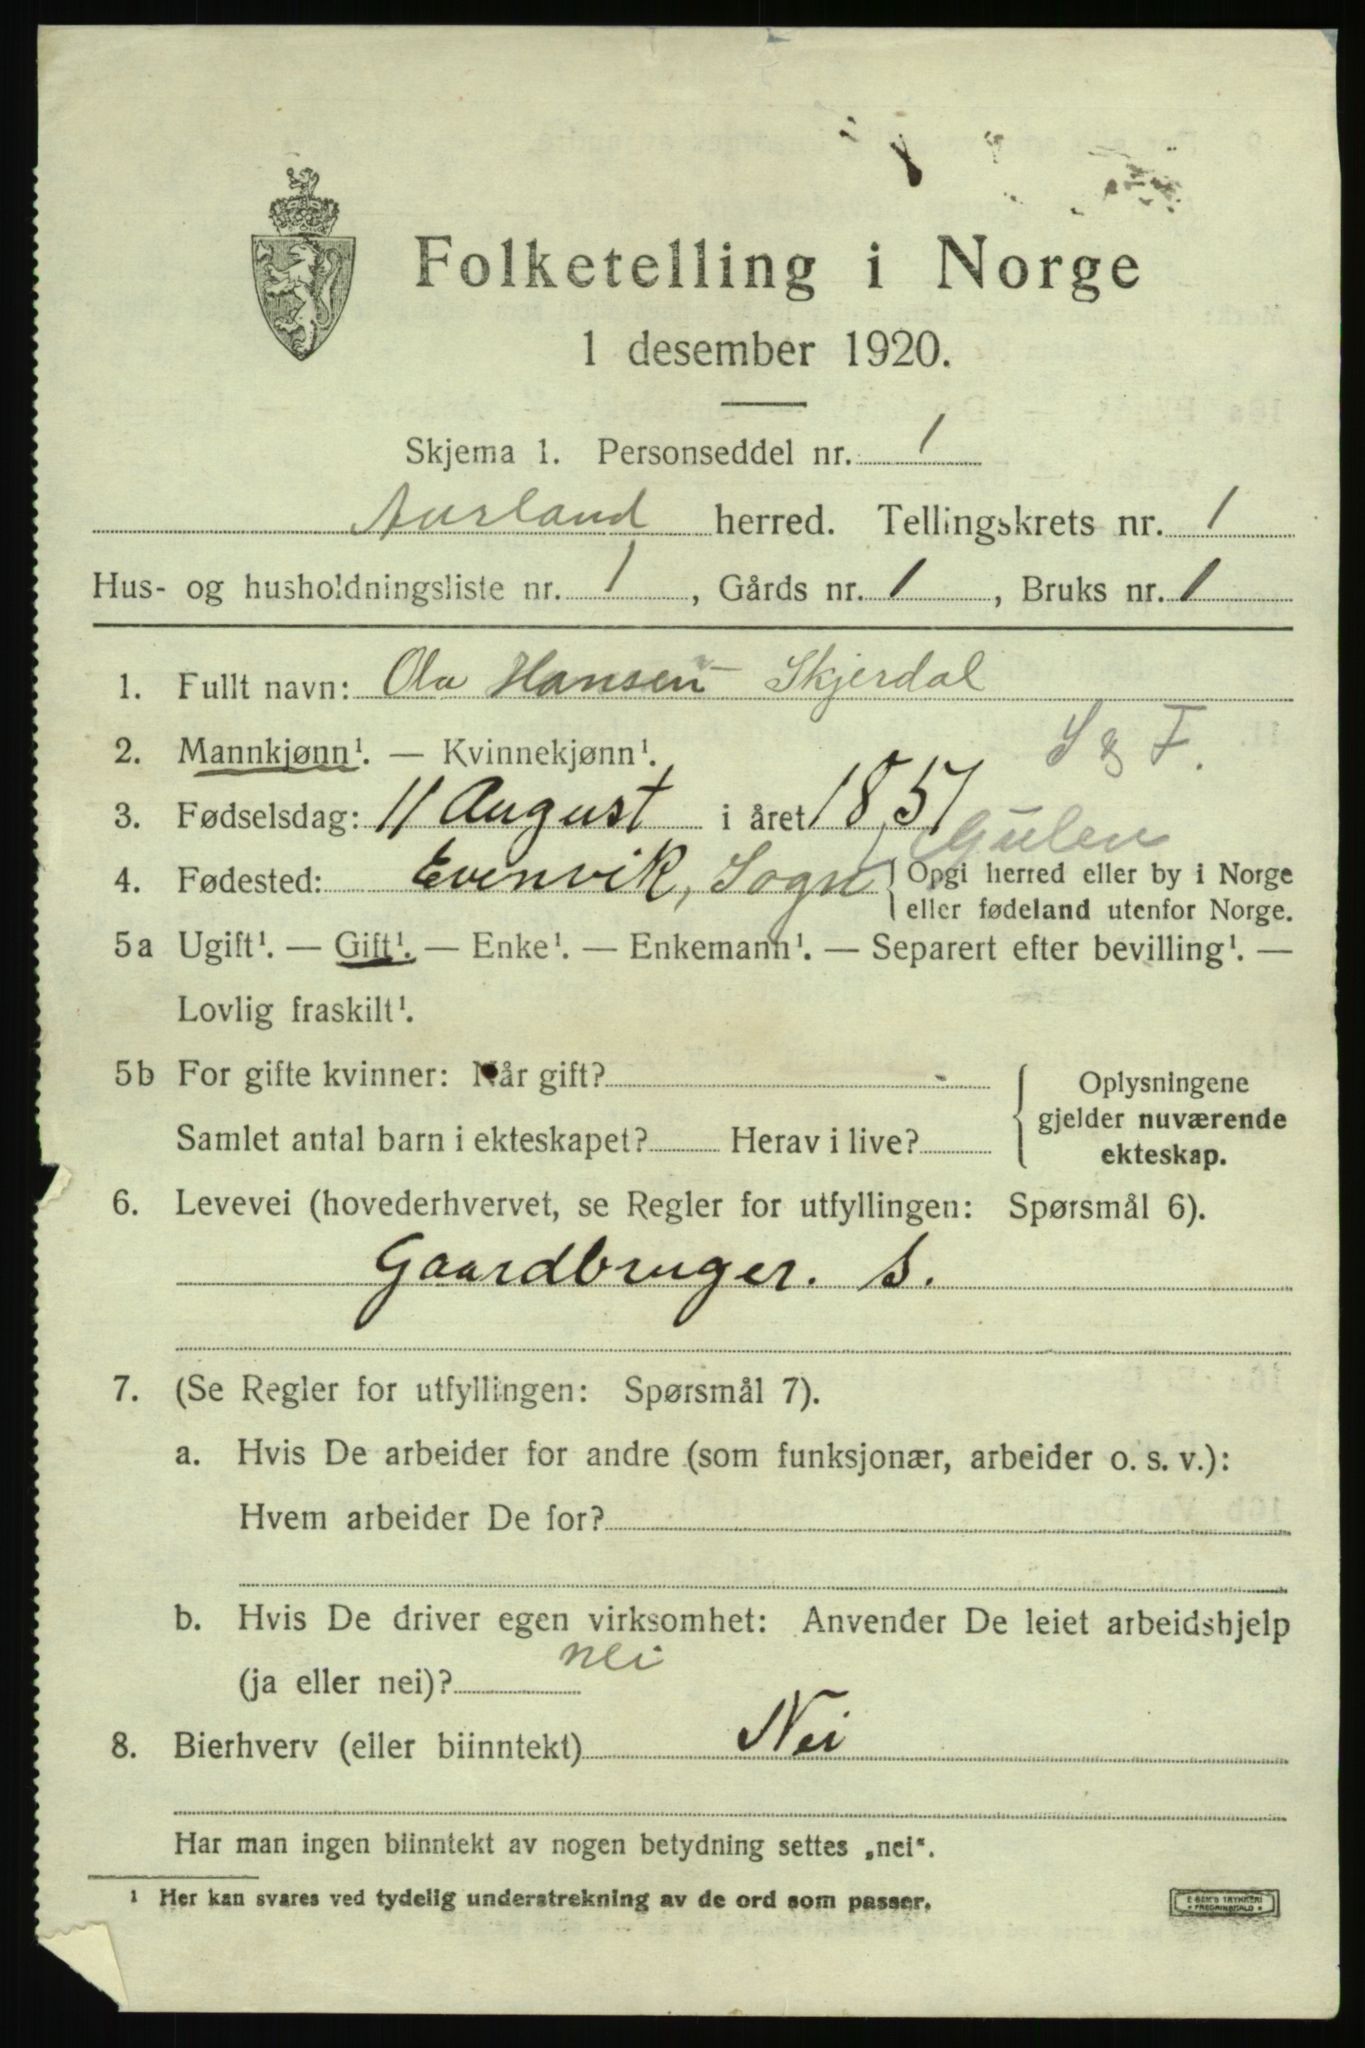 Folketelling i Norge
1 desember 1920.
Skjema 1. Personseddel nr. 1
Aurland herred. Tellingskrets nr. 1
Hus- og husholdningsliste nr. 1, Gårds nr. 1, Bruks nr. 1
1. Fullt navn: Ola Hansen Skjerdal
S & F.
2. Mannkjønn¹. — Kvinnekjønn¹.
3. Fødselsdag: 11 August i året 1851
Gulen
4. Fødested: Evenvik, Sogn { Opgi herred eller by i Norge
eller fødeland utenfor Norge.
5a Ugift¹. — Gift¹. — Enke¹. — Enkemann¹. — Separert efter bevilling¹. —
Lovlig fraskilt¹.
5b For gifte kvinner: Når gift?
Samlet antal barn i ekteskapet? Herav i live?
{ Oplysningene
gjelder nuværende
ekteskap.
6. Levevei (hovederhvervet, se Regler for utfyllingen: Spørsmål 6).
Gaardbruger. S.
7. (Se Regler for utfyllingen: Spørsmål 7).
a. Hvis De arbeider for andre (som funksjonær, arbeider o. s. v.):
Hvem arbeider De for?
b. Hvis De driver egen virksomhet: Anvender De leiet arbeidshjelp
(ja eller nei)? nei
8. Bierhverv (eller biinntekt) Nei
Har man ingen biinntekt av nogen betydning settes „nei“.
¹ Her kan svares ved tydelig understrekning av de ord som passer.
E SEM'S TRYKKERI
FREDRIKSHALD